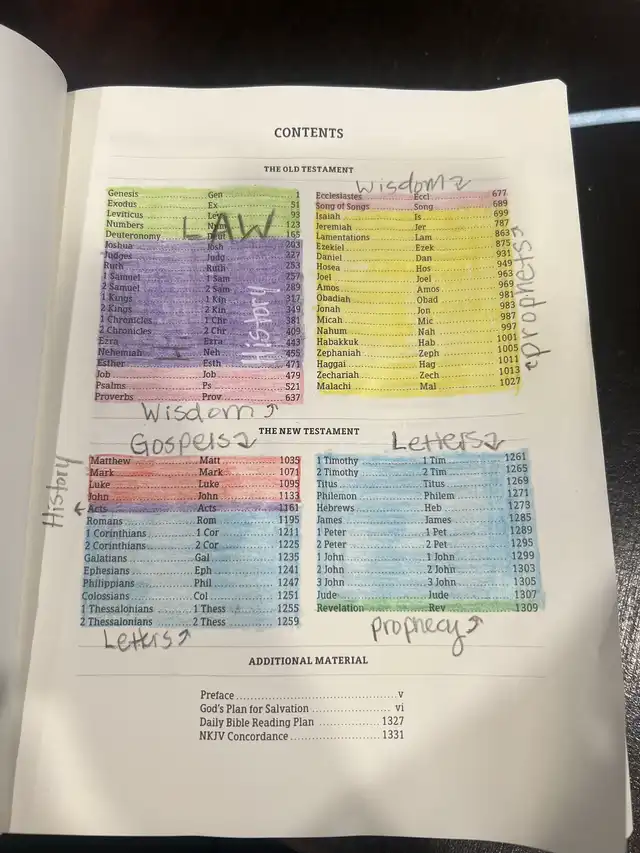 CONTENTS
THE OLD TESTAMENT
Genesis Gen 1
Exodus Ex 51
Leviticus Lev 93
Numbers Num 123
Deuteronomy Deut 165
LAW
Joshua Josh 203
Judges Judg 227
Ruth Ruth 253
1 Samuel 1 Sam 257
2 Samuel 2 Sam 289
1 Kings 1 Kin 317
2 Kings 2 Kin 349
1 Chronicles 1 Chr 381
2 Chronicles 2 Chr 409
Ezra Ezra 443
Nehemiah Neh 455
Esther Esth 471
History
Job Job 479
Psalms Ps 521
Proverbs Prov 637
Wisdom
Wisdom
Ecclesiastes Eccl 677
Song of Songs Song 689
Isaiah Is 699
Jeremiah Jer 787
Lamentations Lam 863
Ezekiel Ezek 875
Daniel Dan 931
Hosea Hos 949
Joel Joel 963
Amos Amos 969
Obadiah Obad 981
Jonah Jon 983
Micah Mic 987
Nahum Nah 997
Habakkuk Hab 1001
Zephaniah Zeph 1005
Haggai Hag 1011
Zechariah Zech 1013
Malachi Mal 1027
prophets
THE NEW TESTAMENT
Gospels
Matthew Matt 1035
Mark Mark 1071
Luke Luke 1095
John John 1133
Acts Acts 1161
History
Romans Rom 1195
1 Corinthians 1 Cor 1211
2 Corinthians 2 Cor 1225
Galatians Gal 1235
Ephesians Eph 1241
Philippians Phil 1247
Colossians Col 1251
1 Thessalonians 1 Thess 1255
2 Thessalonians 2 Thess 1259
Letters
Letters
1 Timothy 1 Tim 1261
2 Timothy 2 Tim 1265
Titus Titus 1269
Philemon Philem 1271
Hebrews Heb 1273
James James 1285
1 Peter 1 Pet 1289
2 Peter 2 Pet 1295
1 John 1 John 1299
2 John 2 John 1303
3 John 3 John 1305
Jude Jude 1307
Revelation Rev 1309
prophecy
ADDITIONAL MATERIAL
Preface v
God's Plan for Salvation vi
Daily Bible Reading Plan 1327
NKJV Concordance 1331